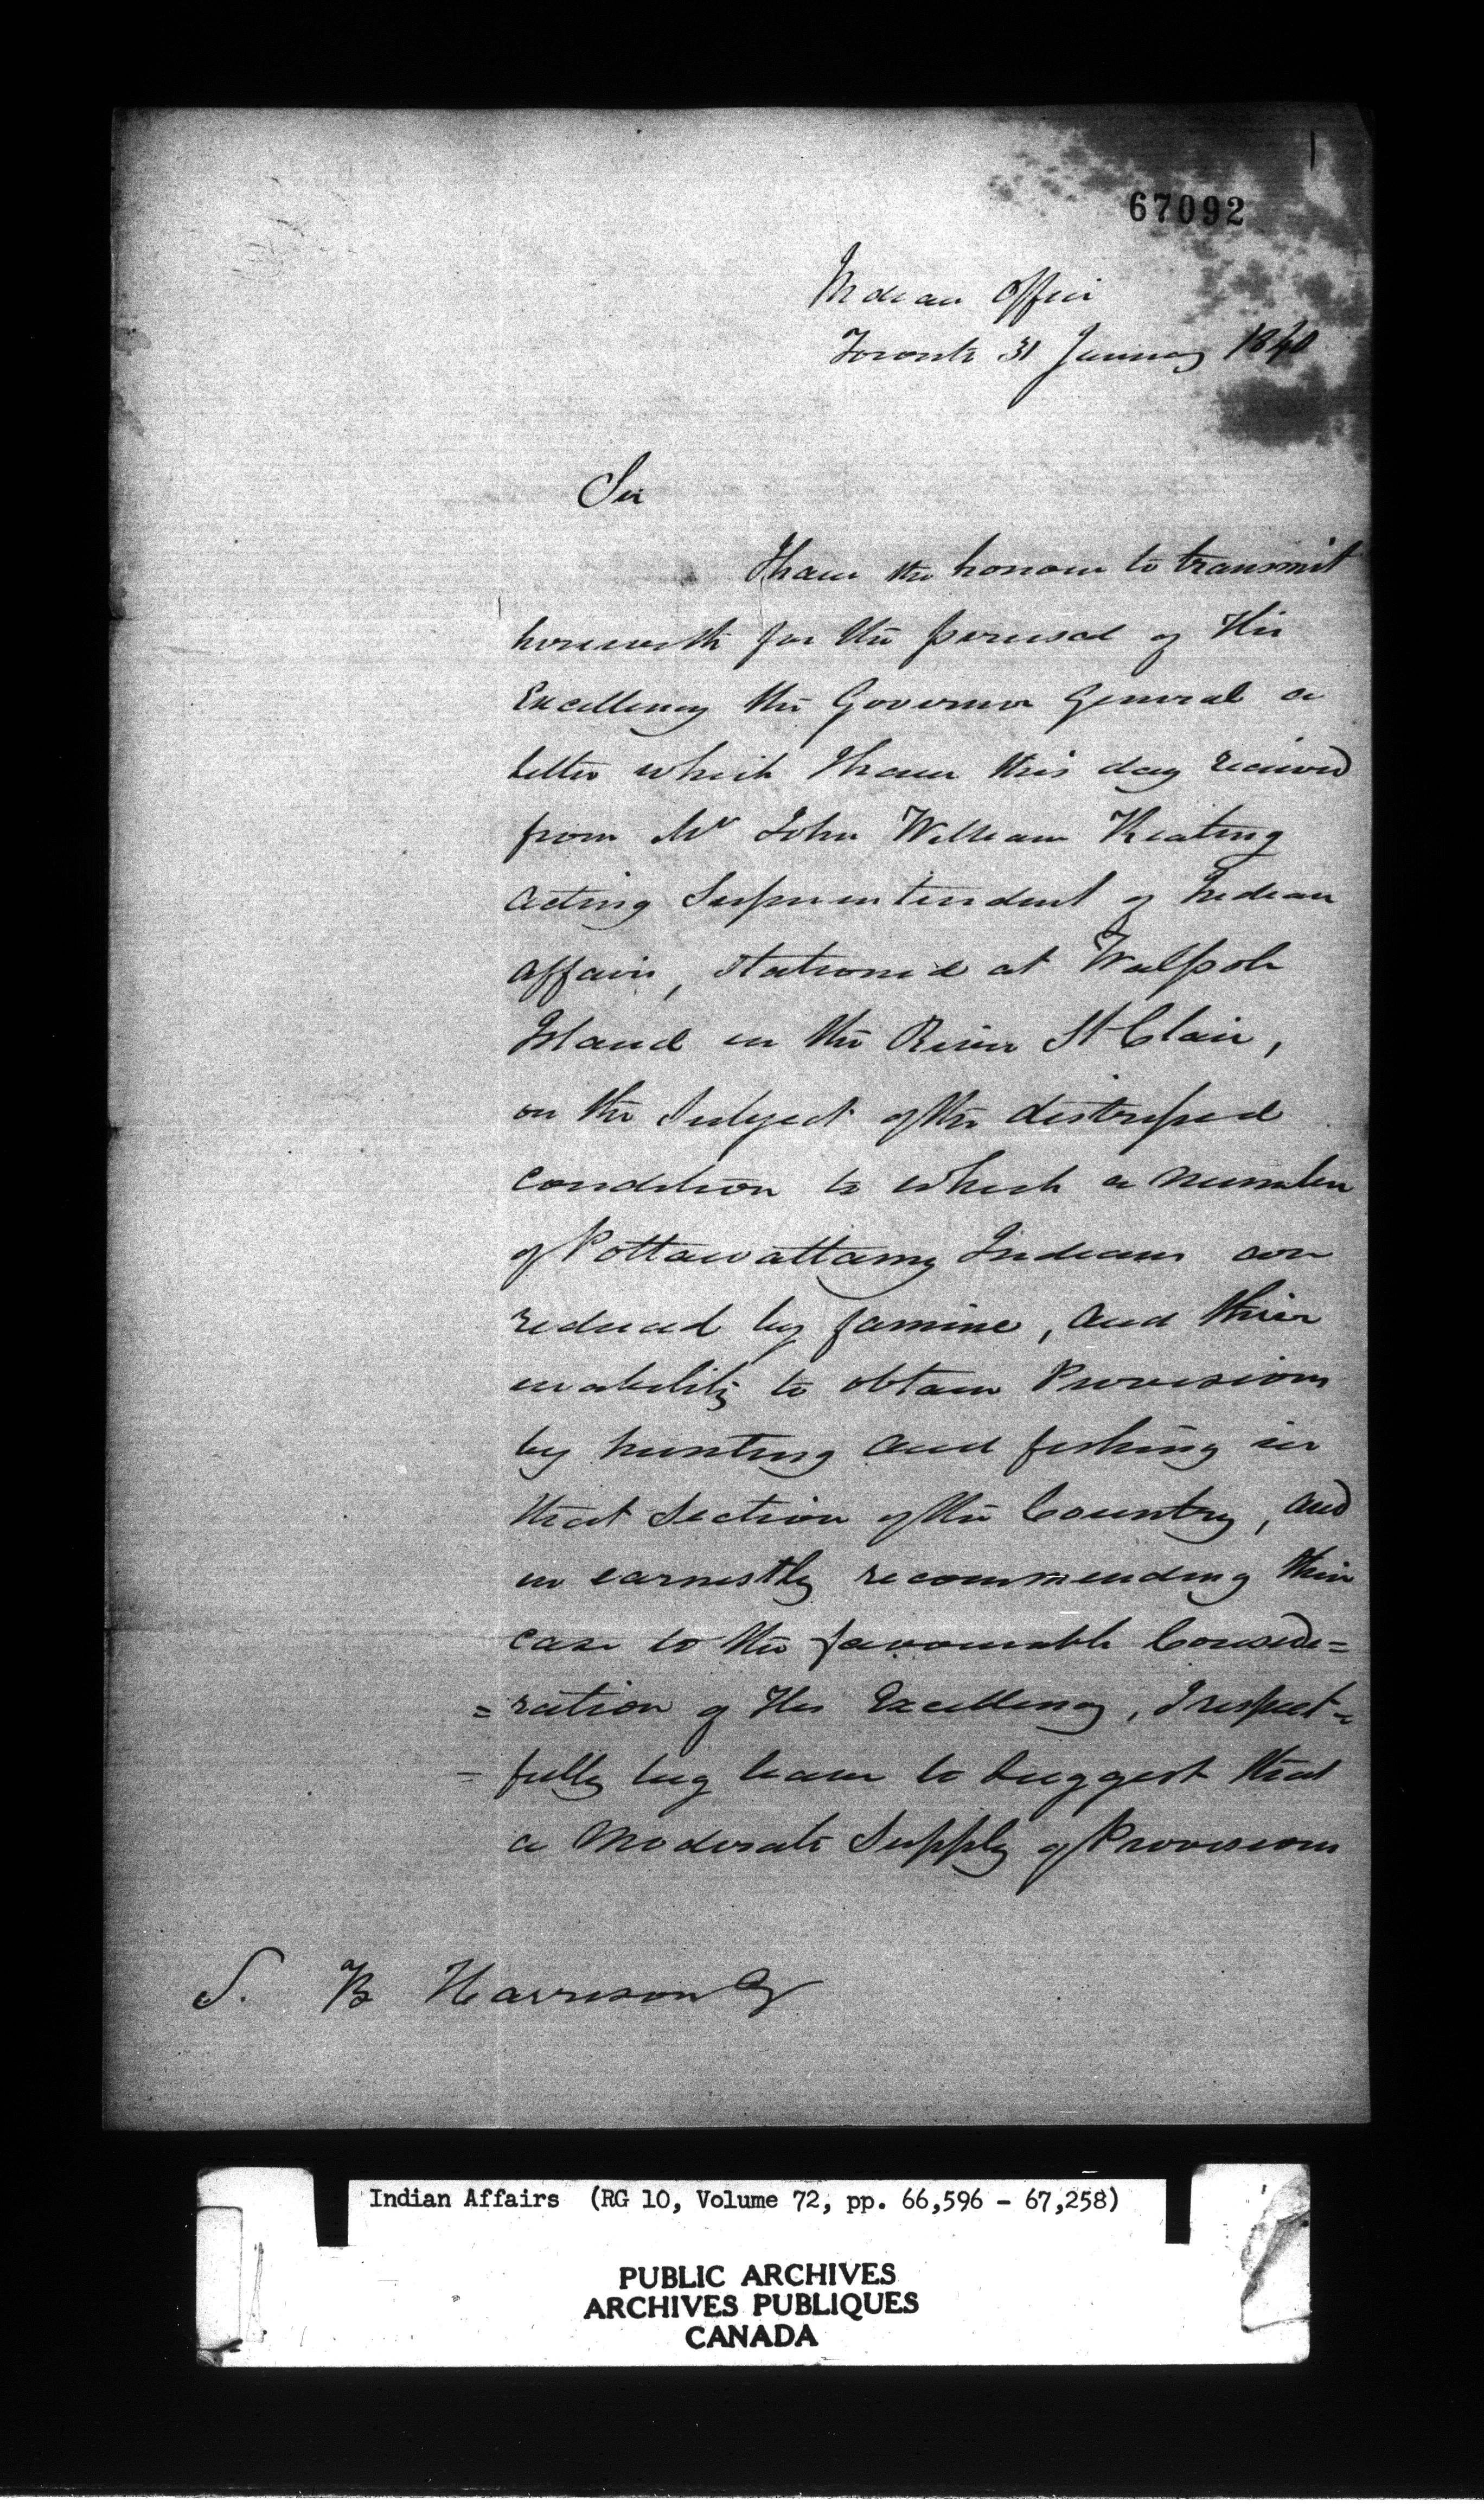 67092
Indian Office
Toronto 31 January 1840
Sir
I have the honour to transmit
herewith for the perusal of His
Excellency the Governor General a
letter which I have this day received
from Mr John William Keating
acting Superintendent of Indian
affairs, stationed at Walpole
Island in the River St Clair,
on the Subject of the distressed
condition to which a number
of Pottawattamy Indians are
reduced by famine, and their
inability to obtain Provisions
by hunting and fishing in
that Section of the Country, and
in earnestly recommending their
case to the favourable Conside=
=ration of His Excellency, I respect=
=fully beg leave to Suggest that
a Moderate Supply of Provisions
S. B Harrison Esq
Indian Affairs (RG 10, Volume 72, pp. 66,596 - 67,258)
PUBLIC ARCHIVES
ARCHIVES PUBLIQUES
CANADA